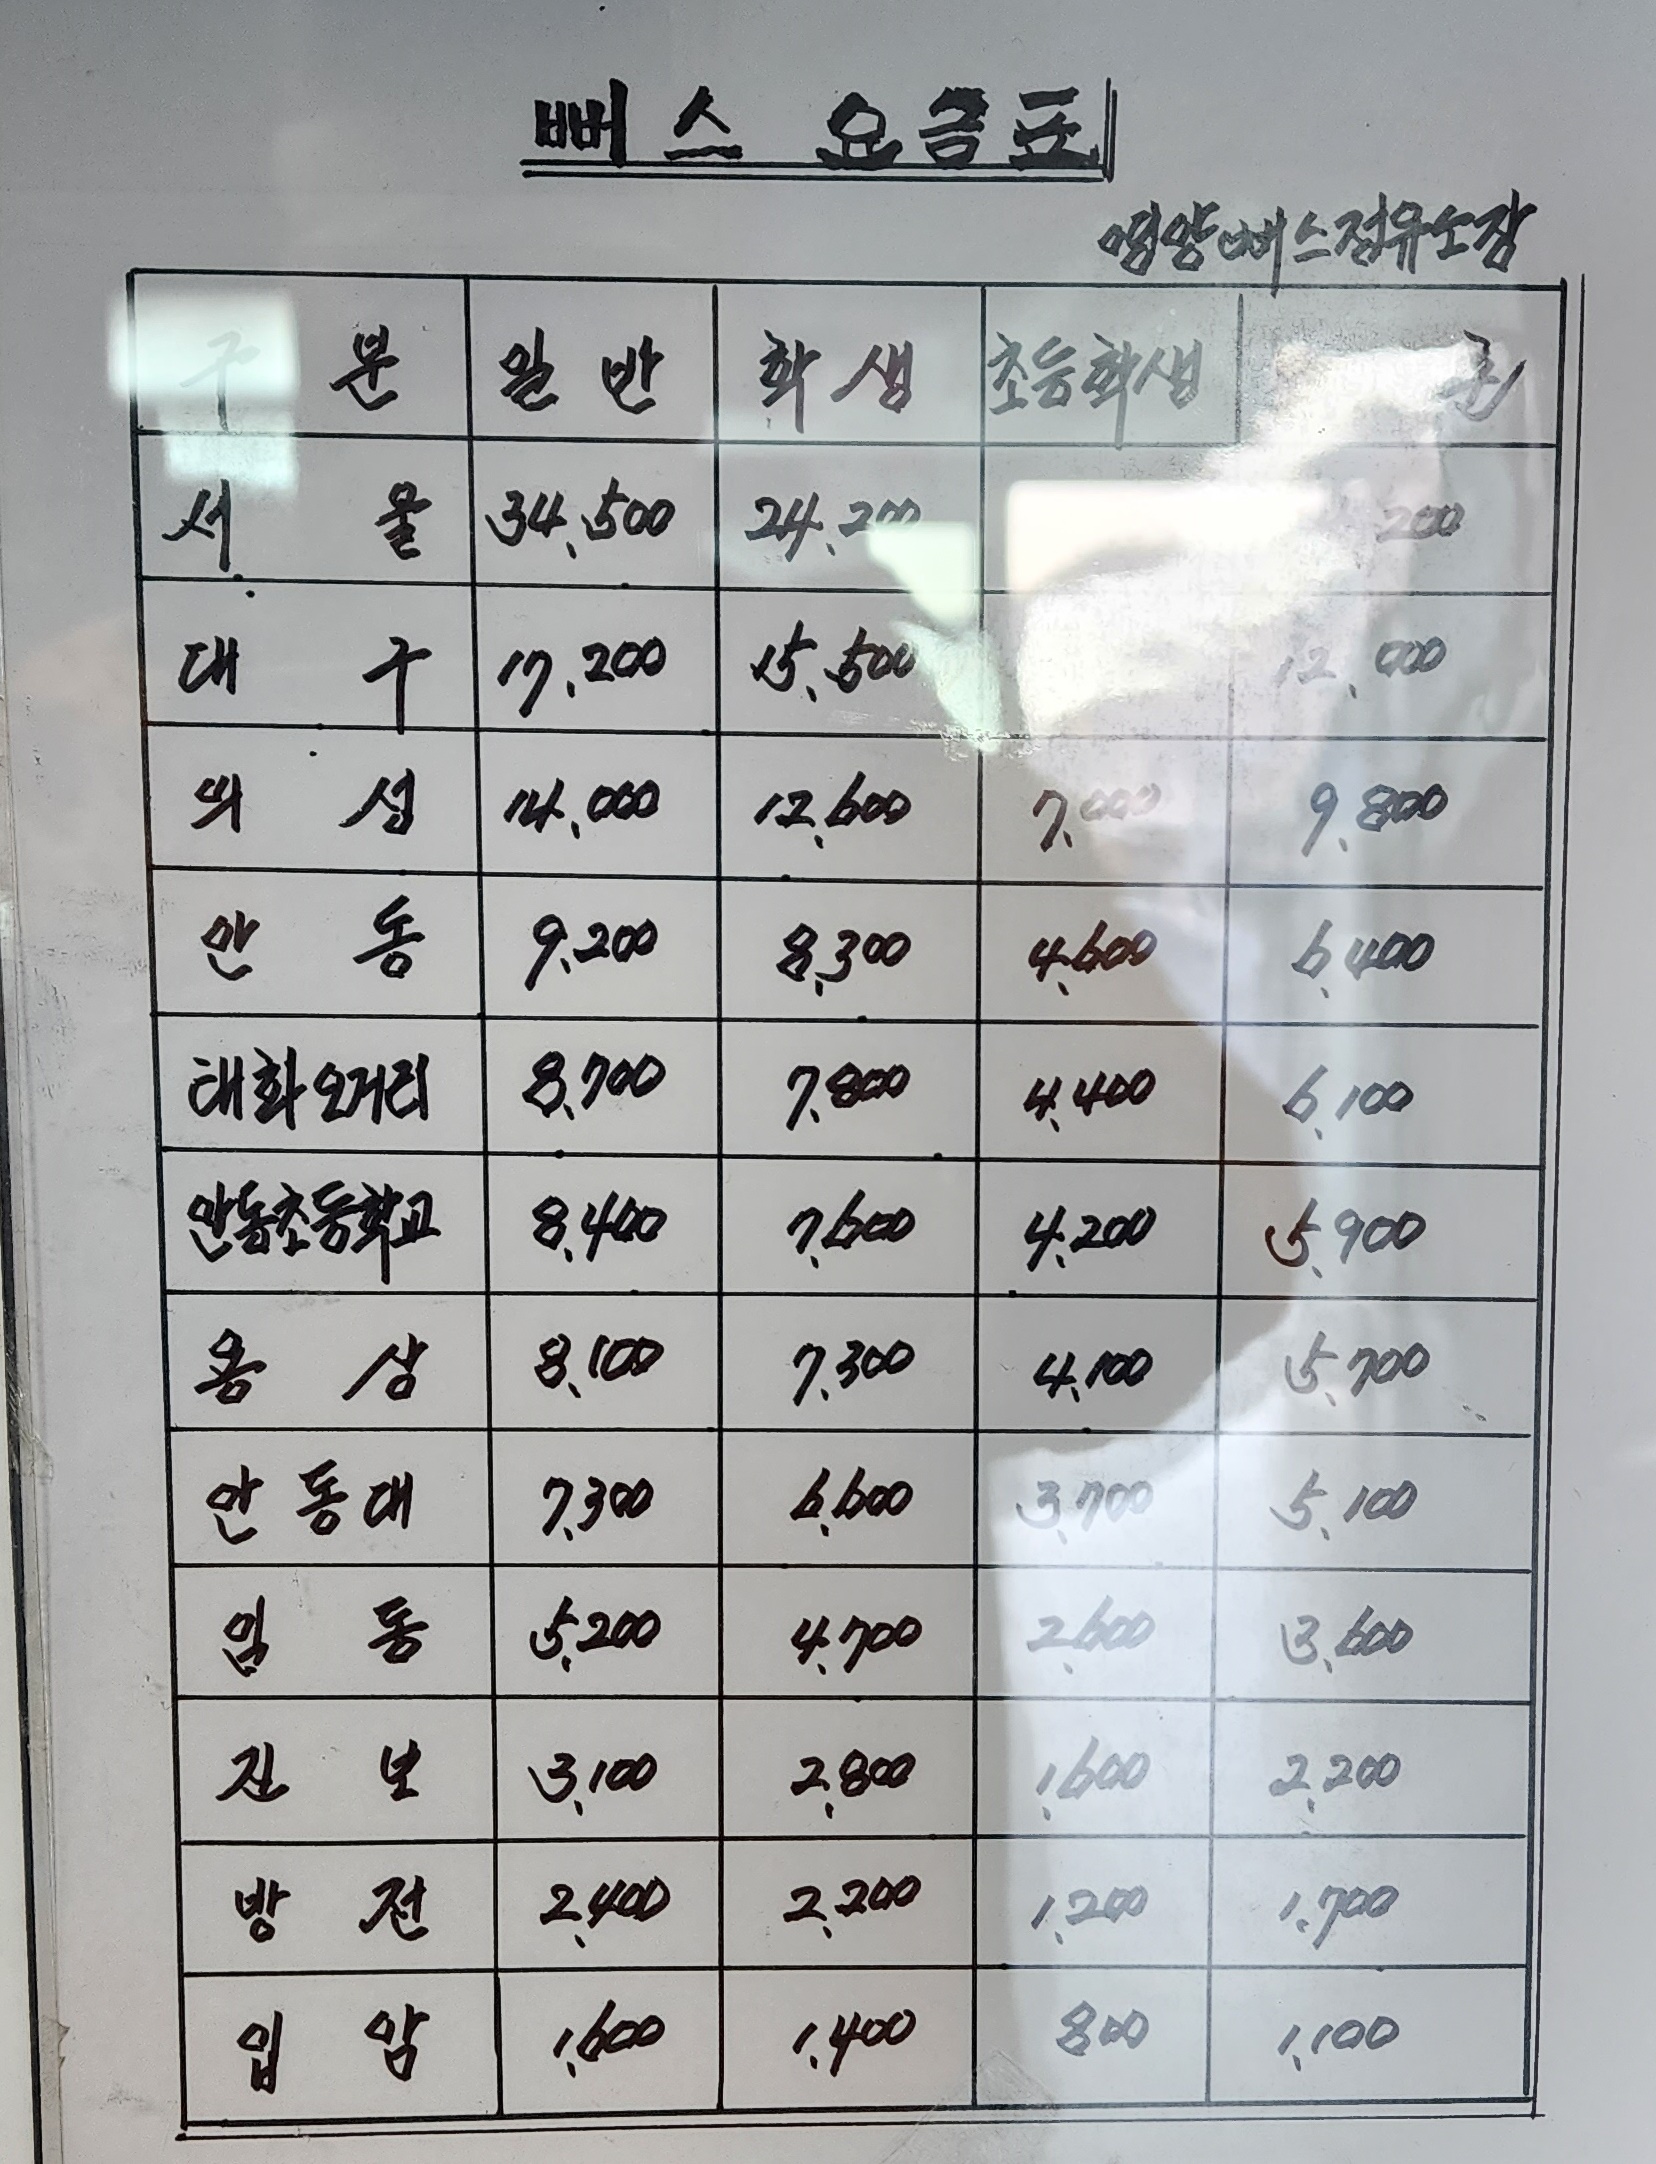 뻐스 요금표
영양뻐스정유소장
구 분 일 반 학 생 초등학생
서 울 34,500 24,200
대 구 17,200 15,500 12,000
의 성 14,000 12,600 7,000 9,800
안 동 9,200 8,300 4,600 6,400
태화오거리 8,700 7,800 4,400 6,100
안동초등학교 8,400 7,600 4,200 5,900
용 상 8,100 7,300 4,100 5,700
안동대 7,300 6,600 3,700 5,100
임 동 5,200 4,700 2,600 3,600
진 보 3,100 2,800 1,600 2,200
방 전 2,400 2,200 1,200 1,700
입 암 1,600 1,400 800 1,100